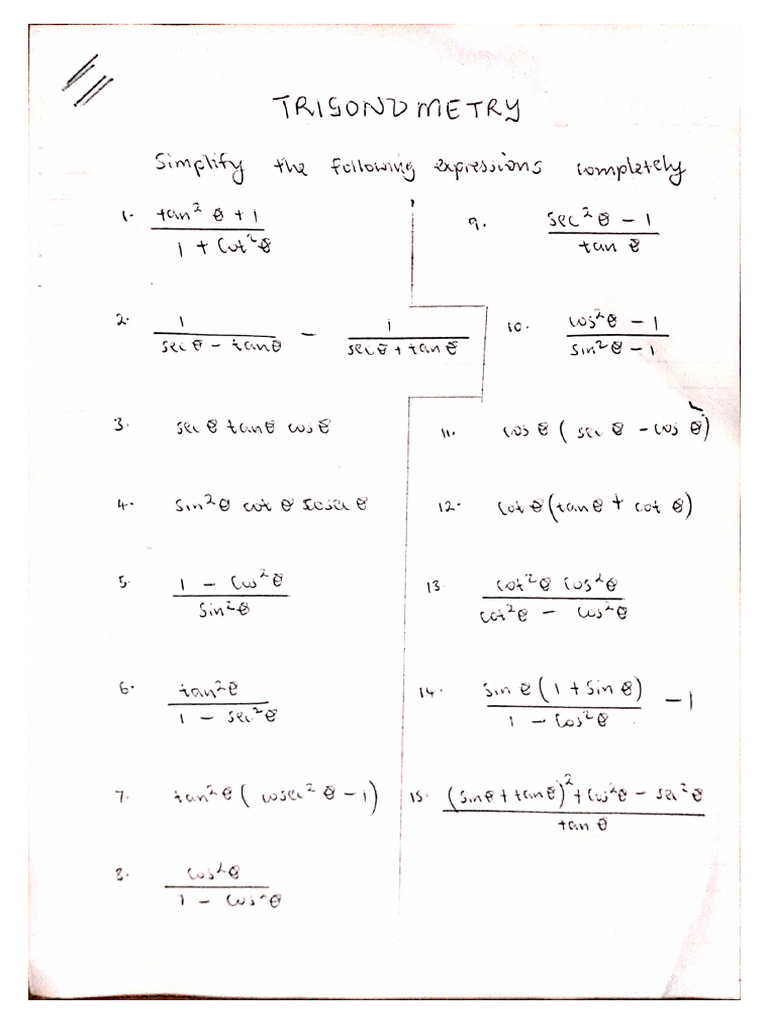 TRIGONOMETRY
Simplify the following expressions completely
1. (tan²θ + 1)/(1 + Cot²θ)
2. 1/(secθ - tanθ) - 1/(secθ + tanθ)
3. sec θ tanθ cosθ
4. sin²θ cot θ cosec θ
5. (1 - Cos²θ)/(Sin²θ)
6. (tan²θ)/(1 - sec²θ)
7. tan²θ( cosec²θ - 1)
8. (cos²θ)/(1 - cos²θ)
9. (sec²θ - 1)/(tan θ)
10. (cos²θ - 1)/(sin²θ - 1)
11. cos θ( sec θ - cos θ)
12. cot θ(tanθ + cot θ)
13. (cot²θ cos²θ)/(cot²θ - cos²θ)
14. (sin θ(1 + sin θ))/(1 - cos²θ) - 1
15. ((sinθ + tanθ)² + cos²θ - sec²θ)/(tan θ)